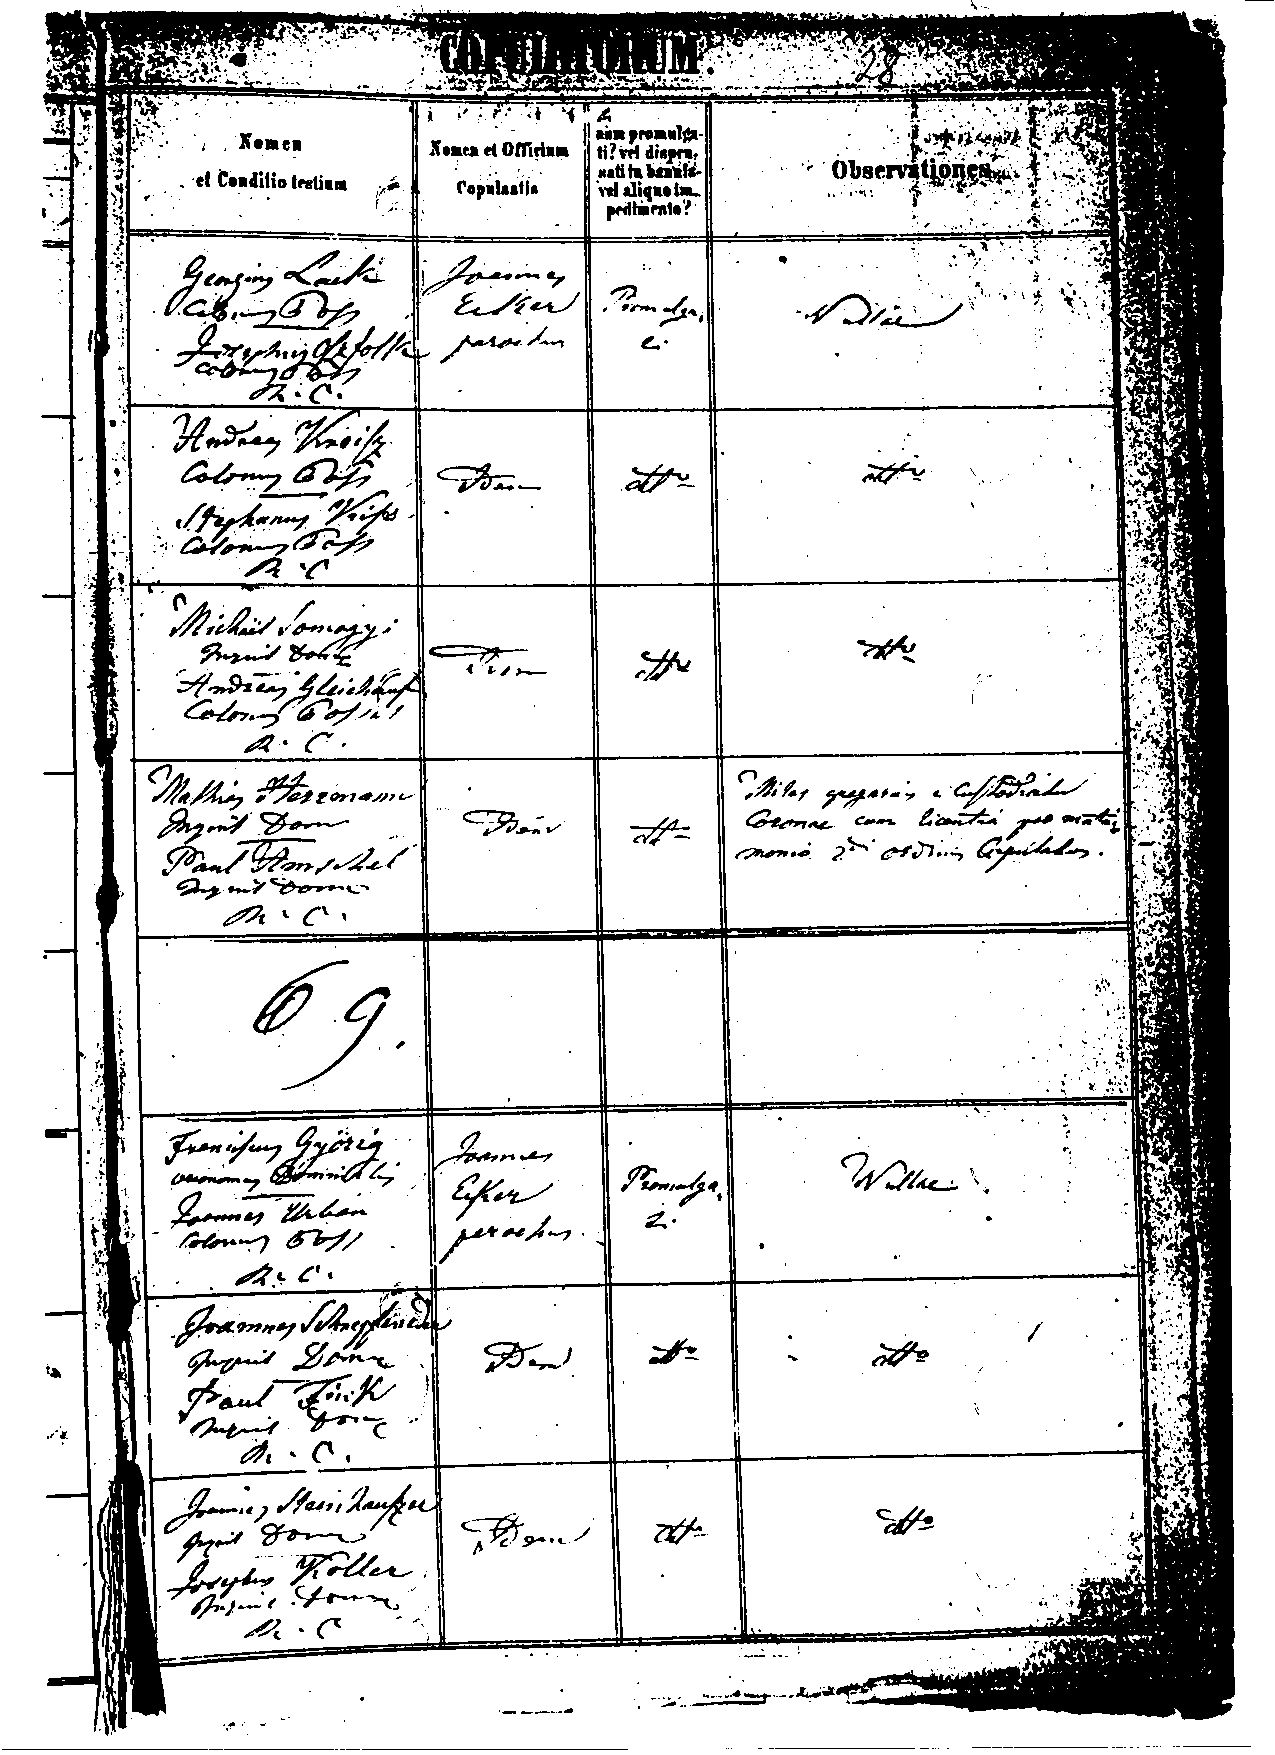 COPULATORUM.
28
Nomen
et Conditio testium
Nomen et Officium
Copulantis
an promulga-
ti? vel dispen-
sati in bannis
vel aliquo im-
pedimento?
Observationes
Georgius
Colonus Poss
Josephus
Colonus Poss
R. C.
Joannes
Ecker
parochus
Promulga,
ti
Nullae
Andreas
Colonus Poss
Stephanus
Colonus Poss
R. C
Idem
dtto
dtto
Michael Somogyi
Inquil Dom
Andreas Gleichauf
Colonus Poss
R. C.
Idem
dtto
dtto
Mathias Herzmann
Inquil Dom
Paul Amschel
Inquil Dom
R. C.
Idem
dtto
Miles gregarius e Custodiatu
Coronae cum licentia pro matri,
monio 2di ordinis Copulatus.
69.
Franciscus Györig
oeconomus Dominalis
Joannes Urban
Colonus Poss
R. C.
Joannes
Ecker
parochus
Promulga,
ti
Nullae
Joannes
Inquil Dom
Paul
Inquil Dom
R. C.
Idem
dtto
dtto
Joannes Steinhauser
Inquil Dom
Josephus Koller
Inquil Dom
R. C
Idem
dtto
dtto